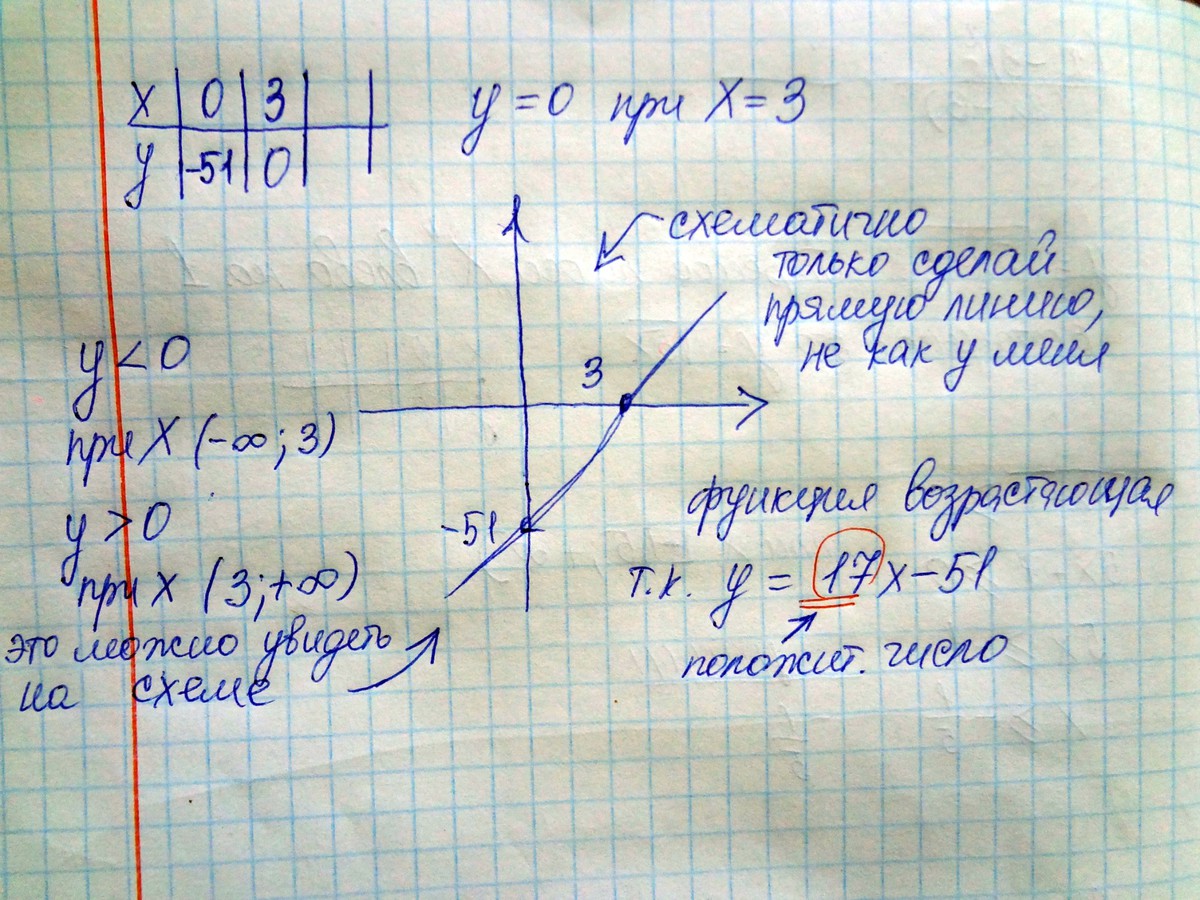 x 0 3
y -51 0
y = 0 при x = 3
схематично
только сделай
прямую линию,
не как у меня
3
-51
y < 0
при x (-∞; 3)
y > 0
при x (3; +∞)
это можно увидеть
на схеме
функция возрастающая
т.к. y = 17x - 51
положит. число